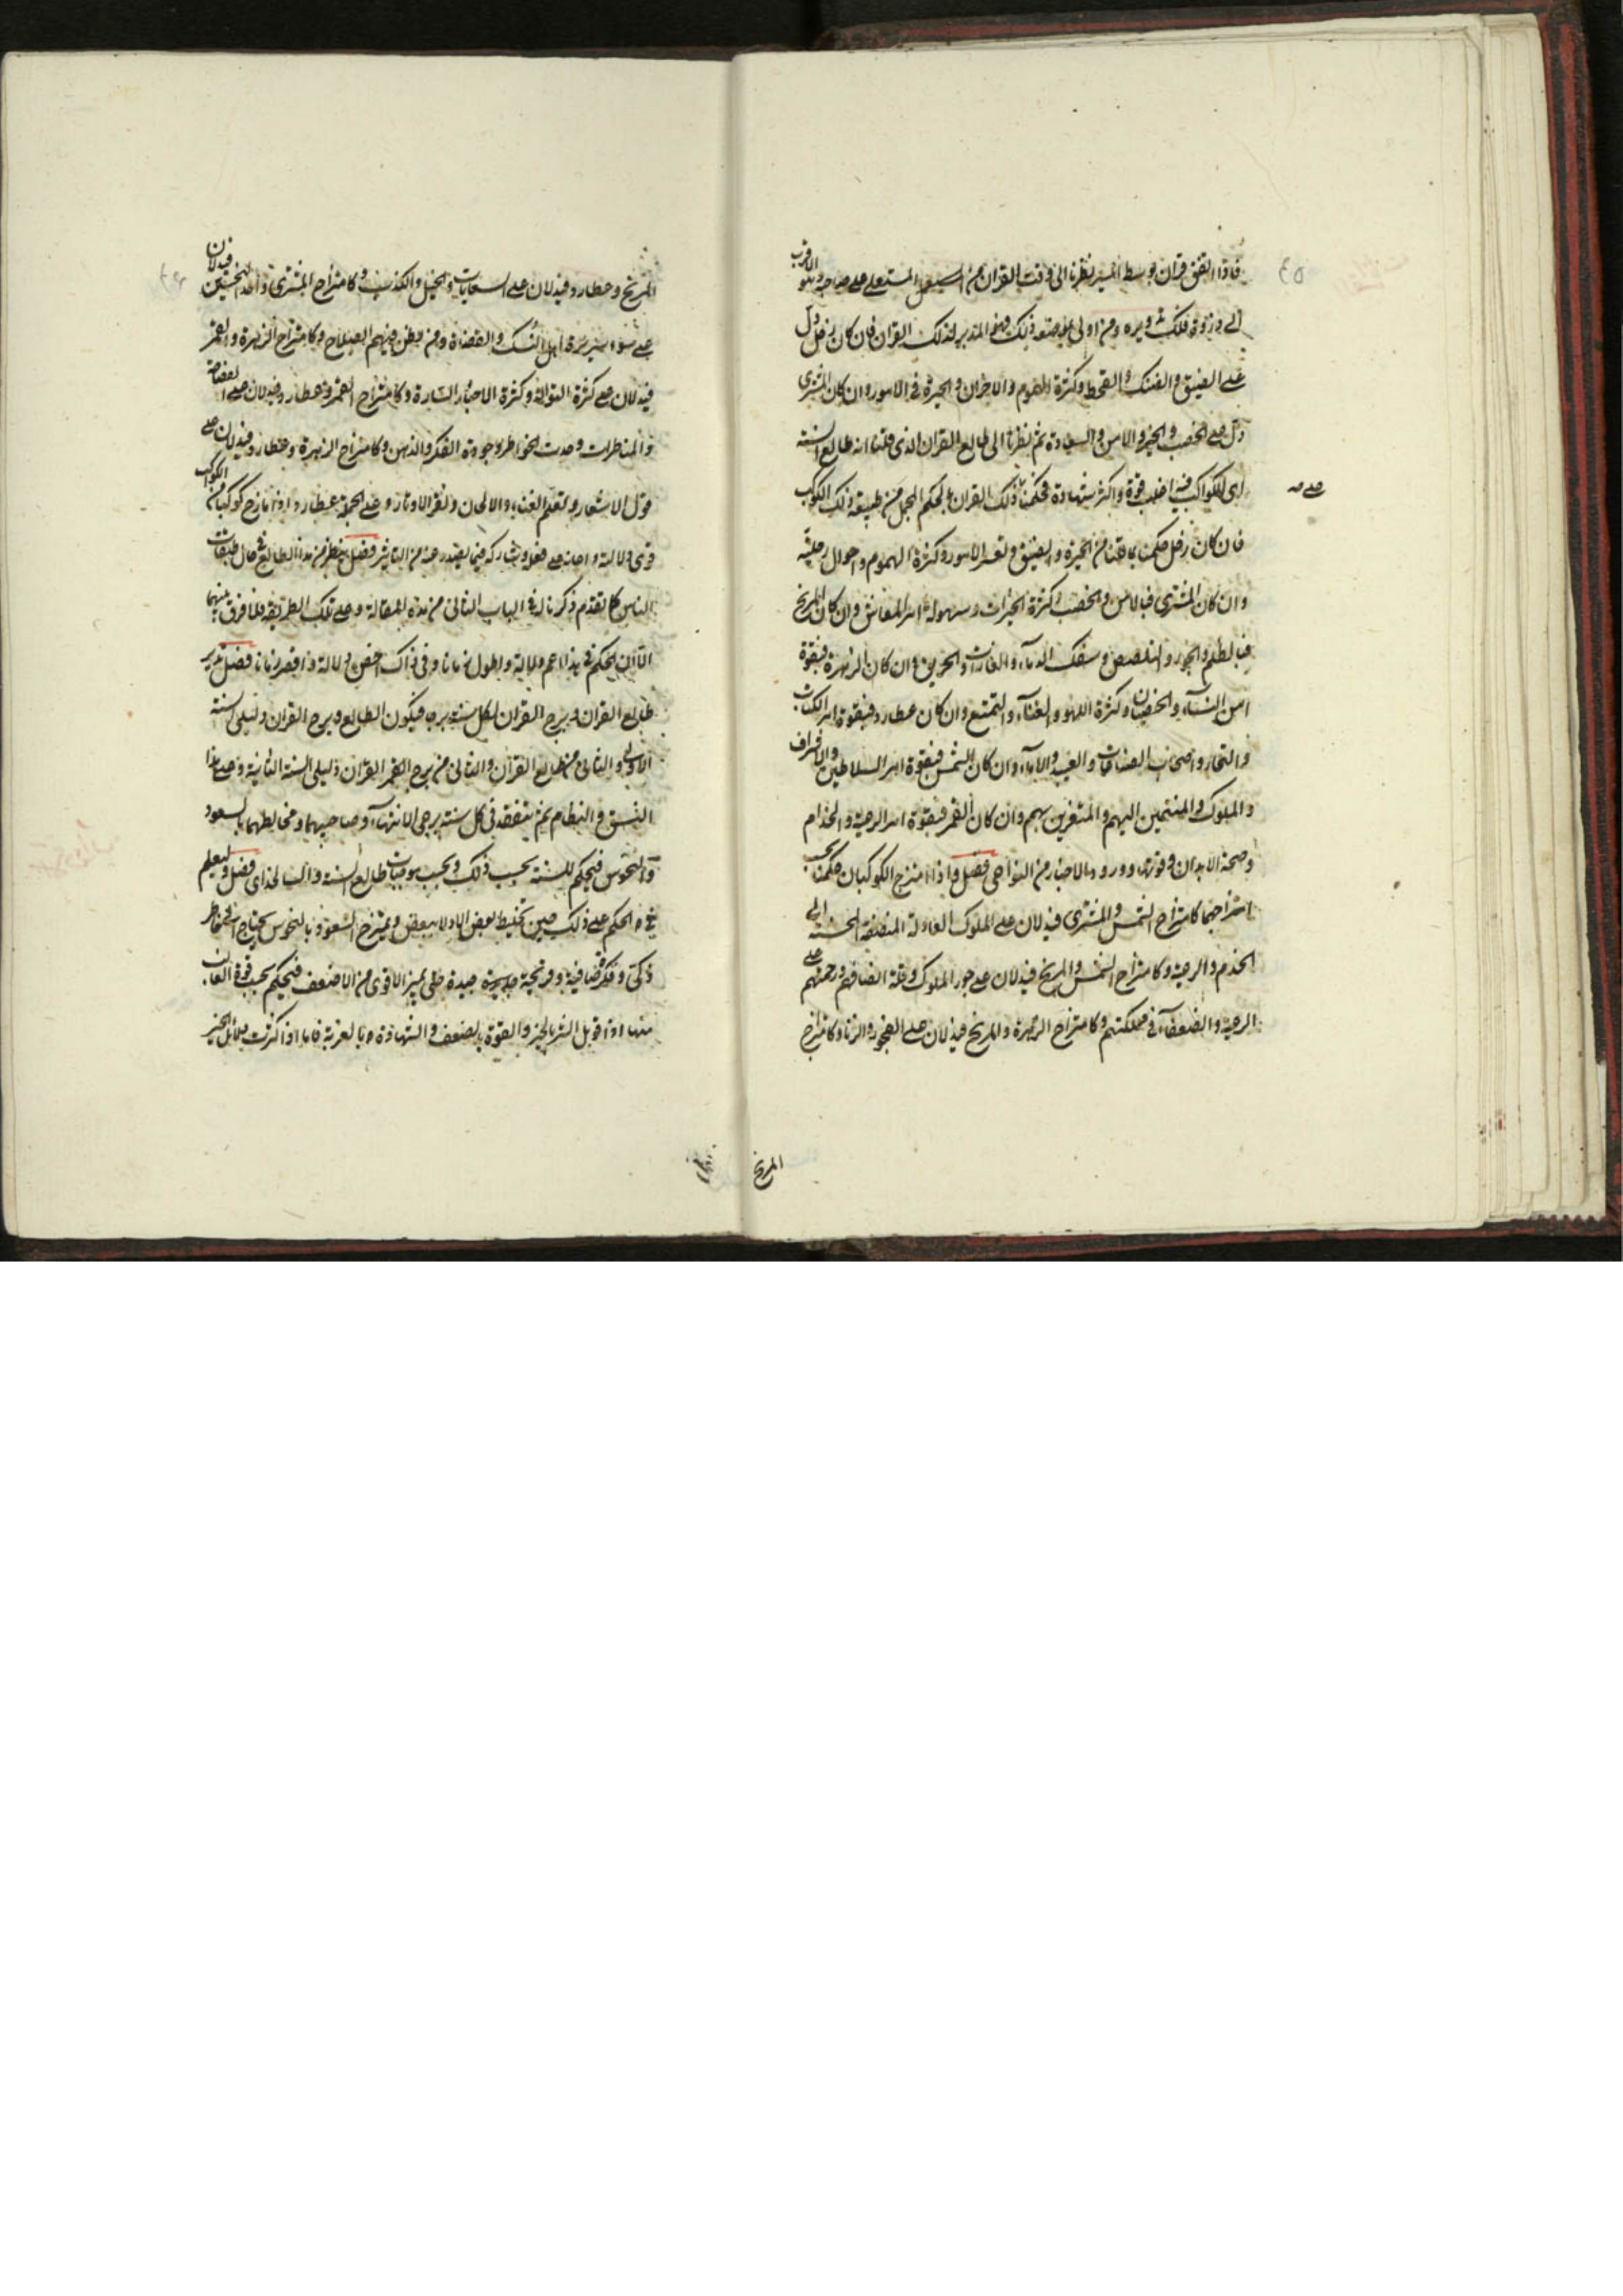 فاذا اتفق قران بوسط المسير نظرنا الى وقت القران من المستعلى على صاحبه وهو الاقرب
الى ذروة فلك تدويره ومن اولى بالاصعد ذلك فهو المدبر لذلك القران فان كان زحل دل
على الضيق والضنك والقحط وكثرة الهموم والاحزان والحيرة فى الامور وان كان المشترى
دل على الخصب والخير والامن والسعادة ثم نظرنا الى طالع القران الذى قلنا انه طالع السنة
اى الكواكب فيه اغلب قوة واكثر شهادة فحكمنا ذلك القران بالحكم المجمل من طبيعة ذلك الكوكب
فان كان زحل حكمنا بما قلنا من الحيرة والضيق وتعسر الامور وكثرة الهموم واحوال ردية
وان كان المشترى فبالامن والخصب وكثرة الخيرات وسهولة امر المعاش وان كان المريخ
فبالظلم والجور والتلصص وسفك الدماء والغارات والحريق وان كان الزهرة فبقوة
امر النساء والخصيان وكثرة اللهو والغناء والتمتع وان كان عطارد فبقوة امر الكتاب
والتجار واصحاب الصناعات والعبيد والاماء وان كان الشمس فبقوة امر السلاطين والاشراف
والملوك والمنتمين اليهم والمتعززين بهم وان كان القمر فبقوة امر الرعية والخدام
وصحة الابدان وقوتها وورود الاخبار من النواحى فصل واذا امتزج الكوكبان حكمنا بحسب
امتزاجهما كامتزاج الشمس والمشترى فيدلان على الملوك العادلة المنصفة المحسنة الى
الخدم والرعية وكامتزاج الشمس والمريخ فيدلان على جور الملوك وقلة انصافهم ورحمتهم على
الرعية والضعفاء فى مملكتهم وكامتزاج الزهرة والمريخ فيدلان على الفجور والزنا وكامتزاج
المريخ
المريخ وعطارد فيدلان على السعايات والحيل والكذب وكامتزاج المشترى واحد النحسين فيدلان
على سوء سيرة اهل النسك والقضاة ومن يظن فيهم الصلاح وكامتزاج الزهرة والقمر
فيدلان على كثرة التوالد وكثرة الاخبار السارة وكامتزاج القمر وعطارد فيدلان على الفصاحة
والمناظرات وحدت الخواطر وجودة الفكر والذهن وكامتزاج الزهرة وعطارد فيدلان على
قول الاشعار وتعلم الغناء والالحان ونقر الاوتار وعلى الجملة عطارد اذا مازج كوكبا من الكواكب
قوى دلالته واعانه على فعله وشاركه فيما يصدر عنه من التاثير فصل ينظر من هذا الطالع فى حال طبقات
الناس كما تقدم ذكرنا له فى الباب الثانى من هذه المقالة وعلى تلك الطريقة بلا فرق بينهما
الا ان الحكم فى هذا اعم دلالة واطول زمانا وفى ذاك اخص دلالة واقصر زمانا فصل تدير
طالع القران وبرج القران لكل سنة برجا فيكون الطالع وبرج القران دليلى السنة
الاولى والثانى من طالع القران والثانى من برج القران دليلى السنة الثانية وعلى هذا
النسق والنظام ثم يتفقد فى كل سنة برجى الانتهاء وصاحبيهما ومخالطتهما بالسعود
والنحوس فيحكم للسنة بحسب ذلك وبحسب موجبات طالع السنة والسالخداى فصل وليعلم
فى الحكم على ذلك حين تختلط بعض الادلاء ببعض ويمتزج السعود بالنحوس يحتاج الى خاطر
ذكى وفكر صافية وقريحة جيدة حتى يميز الاقوى من الاضعف فيحكم بحسب قوة الغالب
منهما اذا قوبل الشر بالخير والقوة بالضعف والشهادة بالغربة فاما اذا كثرت دلائل الخير